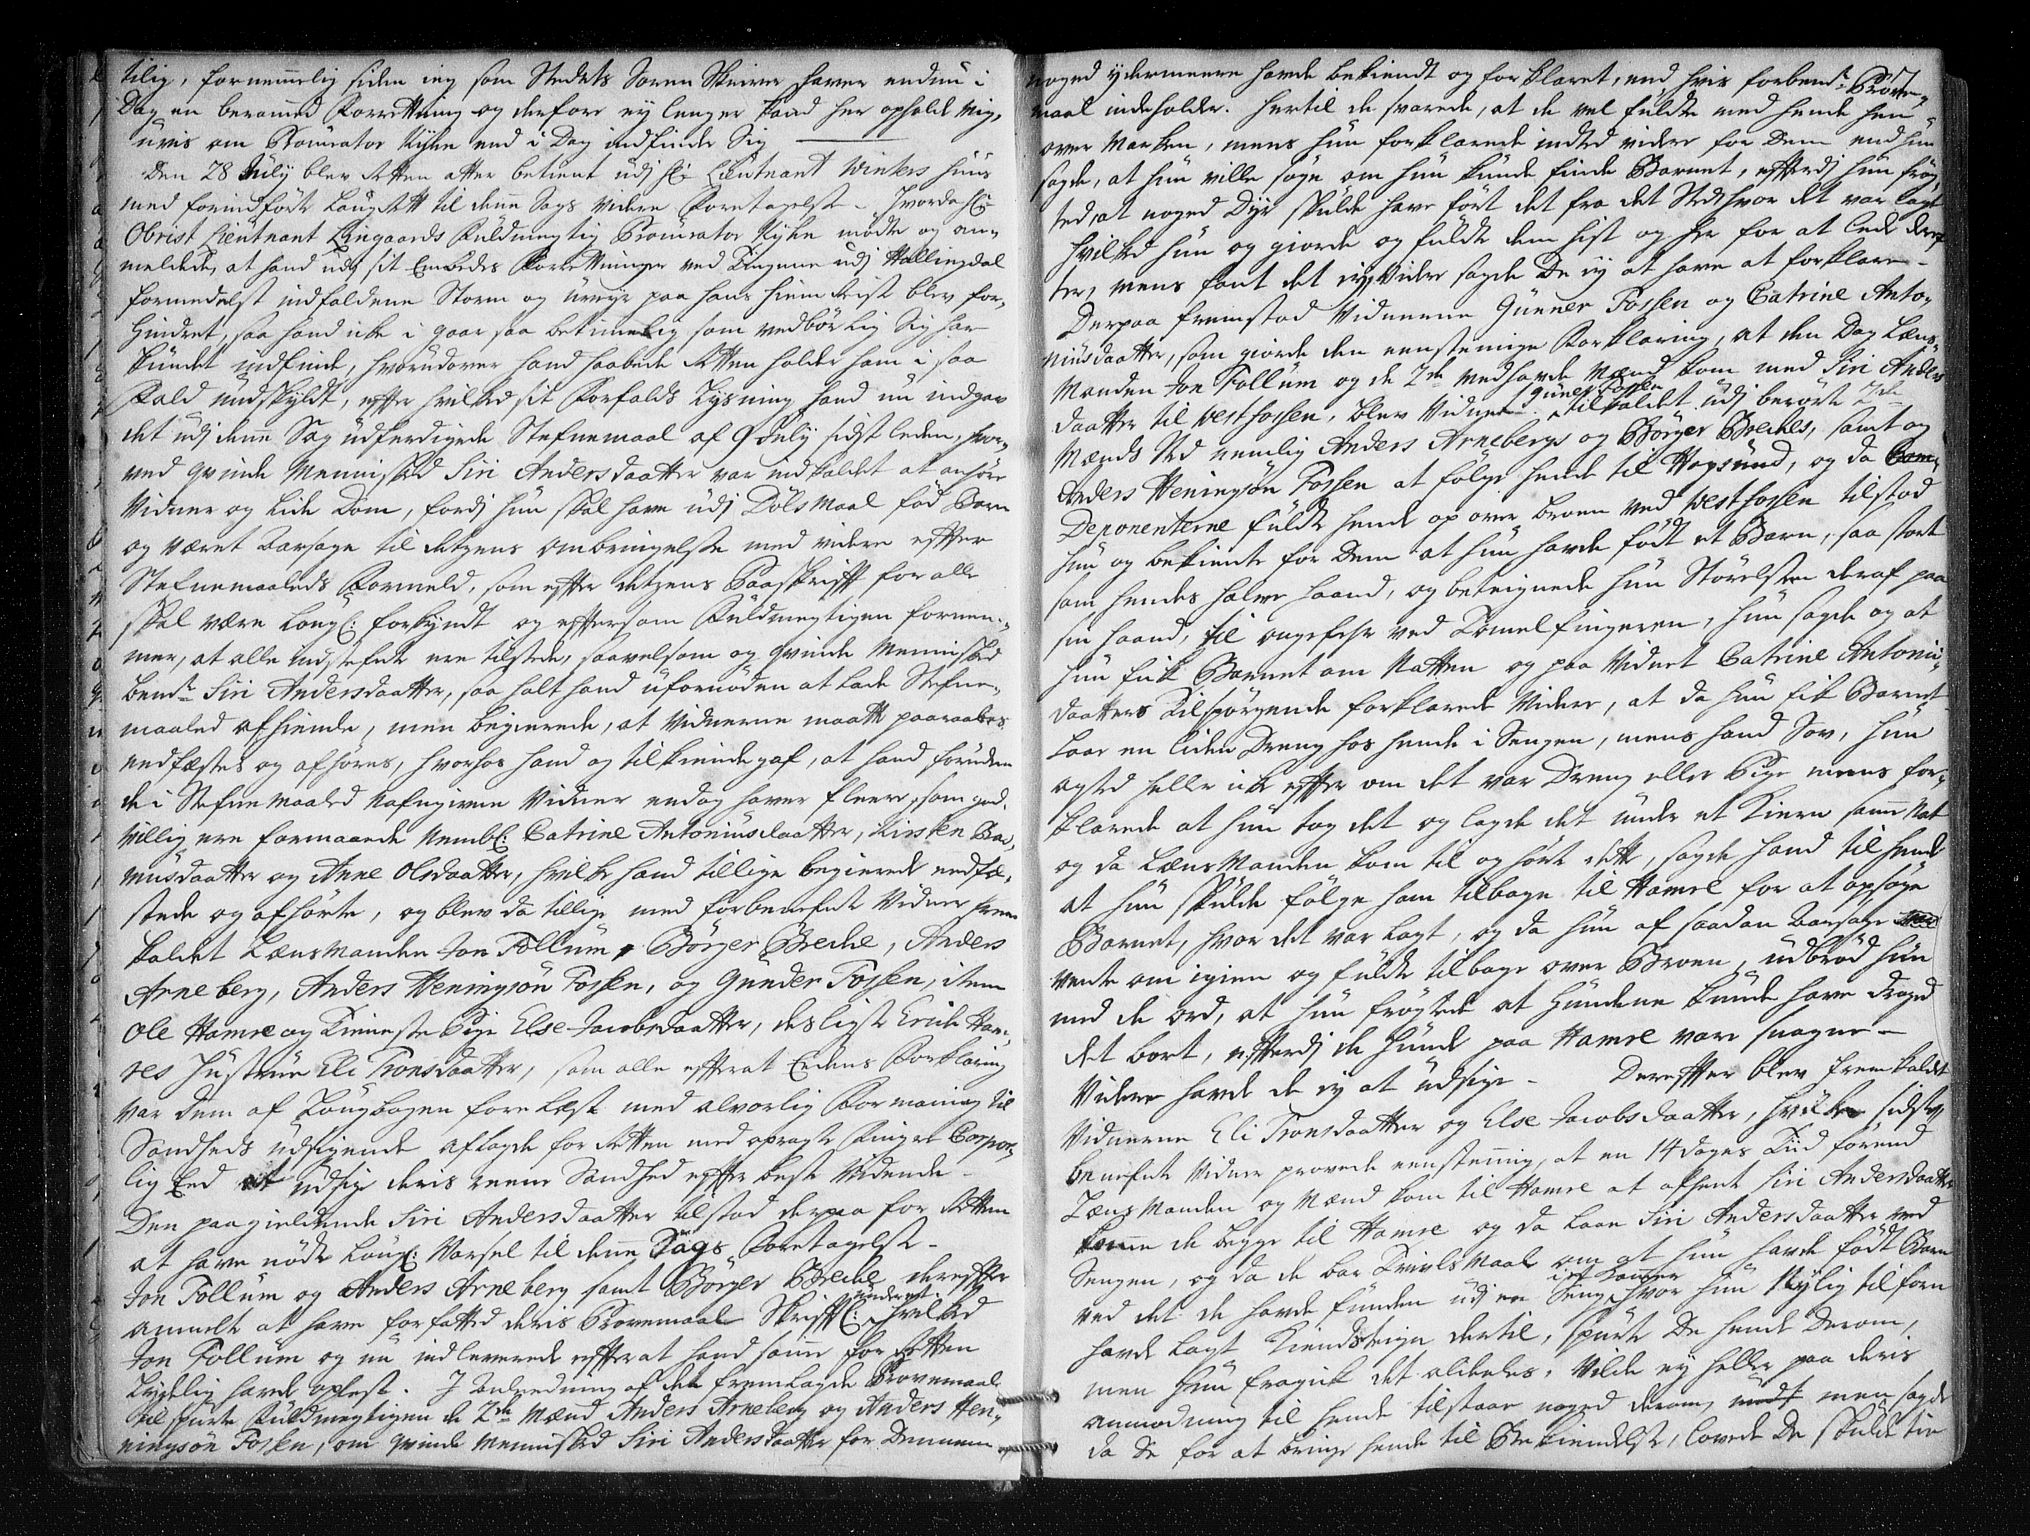 tilig, fornemelig siden ieg som Stedets Soren Skriver haver endnu i
Dag en berammed Forretning og derfore ey lenger kand her opholde mig,
uvis om Procurator Kyhn end i Dag indfinder Sig
Den 28 July blev Retten atter betient udj Hr Lieutnant Winters Huus
med forindførte Laugrett til denne Sags videre Foretagelse. Hvorda Hr
Obrist Lieutnant Lingaards Fuldmegtig Procurator Kyhn mødte og an-
meldede, at hand udj sit Embedes Forretninger ved Tingene udj Hallingdal
formedelst indfaldene Storm og uveyr paa hans hiem Reise blev for-
hindret, saa hand icke i gaar saa betimelig som vedbørlig Sig har
kundet indfinde, hvorudover hand haabede Retten holder ham i saa
Fald undskyldt, effter hvilked sit Forfalds Lysning hand nu indgav
det udj denne Sag udferdigede Stefnemaal af 9 July sidst leden, hvor-
ved qvinde Mennisked Siri Andersdaatter var indkaldet at anhøre
Vidner og Lide Dom, fordj hun skal have udj Dølsmaal fød Barn
og været aarsage til detzens ombringelse med videre effter
Stefnemaaleds Formeld, som effter detzens Paaskrifft for alle
skal være Laugl: forkyndt og efftersom Fuldmegtigen fornem-
mer, at alle indstefnte ere tilstede, saavelsom og qvinde Mennisked
bemte Siri Andersdaatter, saa halt hand ufornøden at lade Stefne-
maaled afhiemle, men begierede, at Vidnerne maatte paaraabes
eedfæstes og afhøres, hvorhos hand og tilkiende gaf, at hand foruden
de i Stefnemaaled Nafngivne Vidner endog haver fleere, som god-
villig ere formaaede Nembl: Catrine Antoniusdaatter, Kirsten Ras-
musdaatter og Anne Olsdaatter, hvilke hand tillige begierede eedfæ-
stede og afhørte, og blev da tillige med forbenefnte Vidner frem
kaldet Lænsmanden Jon Follum, Børger Breche, Anders
Arneberg, Anders Heningsøn Fossen, og Gunder Fossen, item
Ole Hamre og Tieneste Pige Else Jacobsdaatter, desligste Erich Ham-
res Hustrue Eli Tronsdaatter, som alle effter at Eedens Forklaring
var dem af Laugbogen fore læst med alvorlig Formaning til
Sandheds udsigende aflagde for Retten med opragte Fingre Corpor-
lig Eed at udsige deris reene Sandhed effter beste Vidende
Den paagieldende Siri Andersdaatter tilstod derpaa for Retten
at have nødt Laugl: Varsel til denne Sags Foretagelse.
Jon Follum og Anders Arneberg samt Børger Breche dereffter
anmelte at have forfatted deris Prøvemaal Skrifftl: hvilked
Jon Follum og nu indleverede effter at hand samme for Retten
lydelig havde oplest. I Anledning af det fremlagde Prøvemaal
til spurte Fuldmegtigen de 2de Mænd Anders Arneberg og Anders Hen-
ningsøn Fossen, om qvinde Mennisked Siri Andersdaatter for Dennem
noged ydermeere havde bekiendt og forklaret, end hvis forbemte Prøve-
maal indeholder. hertil de svarede, at de vel fulde med hende hen
over Marken, mens hun forklarede inted videre for Dem end hun
sagde, at hun ville søge om hun kunde finde Barnet, effterdj hun frøg-
ted, at noged Dyr skulde have ført det fra det Sted hvor det var lagt
hvilked hun og giorde og fulde dem hist og her for at lede der eff-
ter, mens fant det ey, videre sagde De ey at have at forklare.
Derpaa fremstod Vidnerne Gunner Fossen og Catrine Anto-
niusdaatter, som giorde den eenstemige Forklaring, at den Dag Læns-
Manden Jon Follum og de 2de medhavde Mænd kom med Siri Anders
daatter til Vestfossen, blev Vidnet Guner Fossen tilkaldet udj berørte 2de
Mænds Sted nemlig Anders Arnebergs og Børger Breches, samt og
Anders Heningsøn Fossen at følge hende til Hogsund, og da
Deponenterne fulde hende op over broen ved Vestfossen tilstod
hun og bekiente for Dem at hun havde født et Barn, saa stort
som hendes halve haand, og beteignede hun Størelsen deraf paa
sin haand, til ongefehr ved Tomelfingeren, hun sagde og at
hun fik Barnet om Natten og paa Vidnet Catrine Antoni-
daatters Tilspørgende forklarede videre, at da hun fik Barnet
laae en liden Dreng hos hende i Sengen, mens hand Sov, hun
agted heller icke effter om det var Dreng eller Pige mens for-
klarede at hun tog det og lagde det under et Kiern samme Nat
og da Lænsmanden kom til og hørte dette, sagde hand til hende
at hun skulde følge ham tilbage til Hamre for at opsøge
Barnet, hvor det var lagt, og da hun af saadan aarsage
vente om igien og fulde tilbage over Broen, udbrød hun
med de ord, at hun frøgtede at Hundene kunde have draged
det bort, effterdj de Hunde paa Hamre vare snagne
Videre havde de ey at udsige. Dereffter blev frem kaldet
Vidnerne Eli Tronsdaatter og Else Jacobsdaatter, hvilke sidst
benefnte Vidner provede eenstemig, at en 14 dages Tiid førend
Lænsmanden og Mænd kom til Hamre at afhente Siri Andersdaatter
komme de begge til Hamre og da laae Siri Andersdaatter ved
Sengen, og da de bar Tvivlsmaal om at hun havde født Barn
ved det de havde funden udj en Seng i et Kammer hvor hun Nylig tilforn
havde lagt Kiendsteign dertil, spurte De hende Derom,
men Hun fragik det aldeeles, vilde ey heller paa deris
anmodning til hende tilstaae noged derom, men sagde
da De for at bringe hende til Bekiendelse, lovede De skulde tie